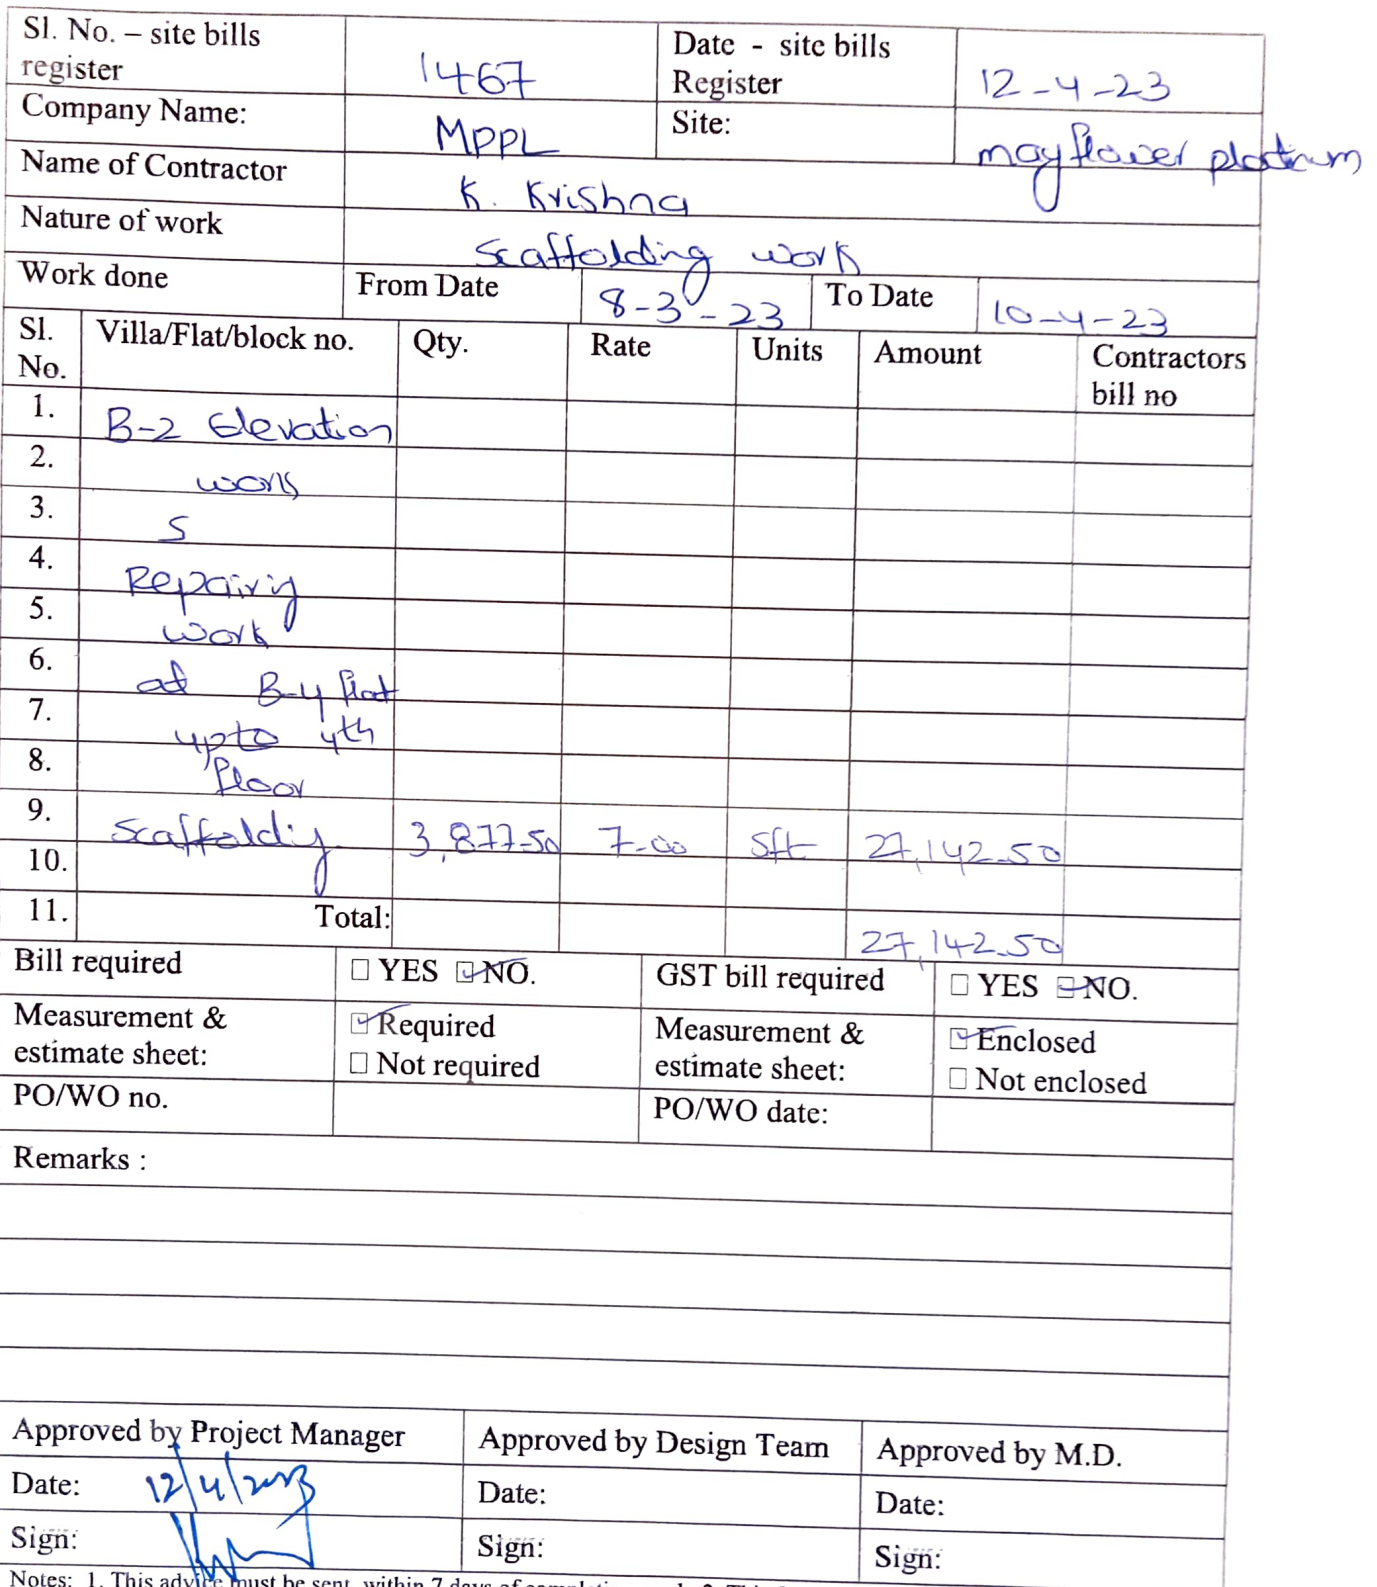 Sl. No. – site bills register 1467 Date - site bills Register 12-4-23
Company Name: MPPL Site: mayflower platinum
Name of Contractor K. Krishna
Nature of work Scaffolding work
Work done From Date 8-3-23 To Date 10-4-23
Sl. No. Villa/Flat/block no. Qty. Rate Units Amount Contractors bill no
1. B-2 Elevation
2.
3.
4. Repairing
5. work
6. at B-4 flat
7. upto 4th
8. floor
9. Scaffolding 3,877-50 7-00 Sft 27,142-50
10.
11. Total: 27,142-50
Bill required ☐ YES ☑ NO. GST bill required ☐ YES ☑ NO.
Measurement & estimate sheet: ☑ Required ☐ Not required Measurement & estimate sheet: ☑ Enclosed ☐ Not enclosed
PO/WO no. PO/WO date:
Remarks :
Approved by Project Manager Approved by Design Team Approved by M.D.
Date: 12/4/2023 Date: Date:
Sign: Sign: Sign:
Notes: 1. This advice must be sent within 7 days of